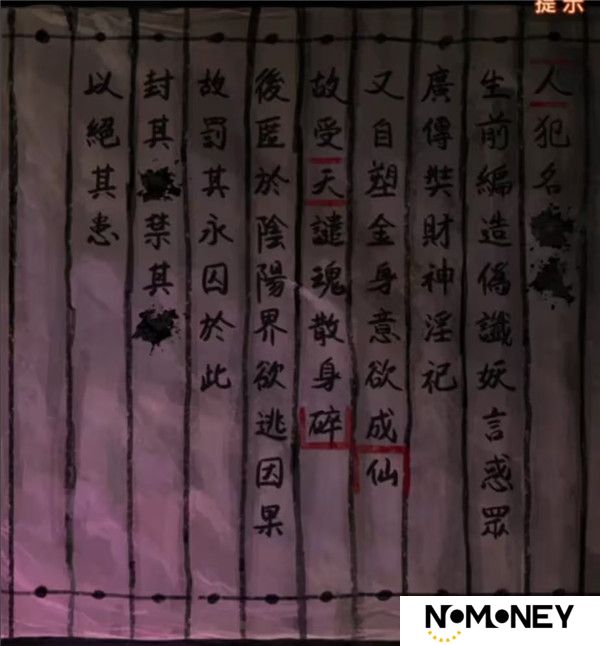 提示
人犯名
生前編造僞讖妖言惑眾
廣傳奘財神淫祀
又自塑金身意欲成仙
故受天譴魂散身碎
後匿於陰陽界欲逃因果
故罰其永囚於此
封其禁其
以絕其患
NOMONEY